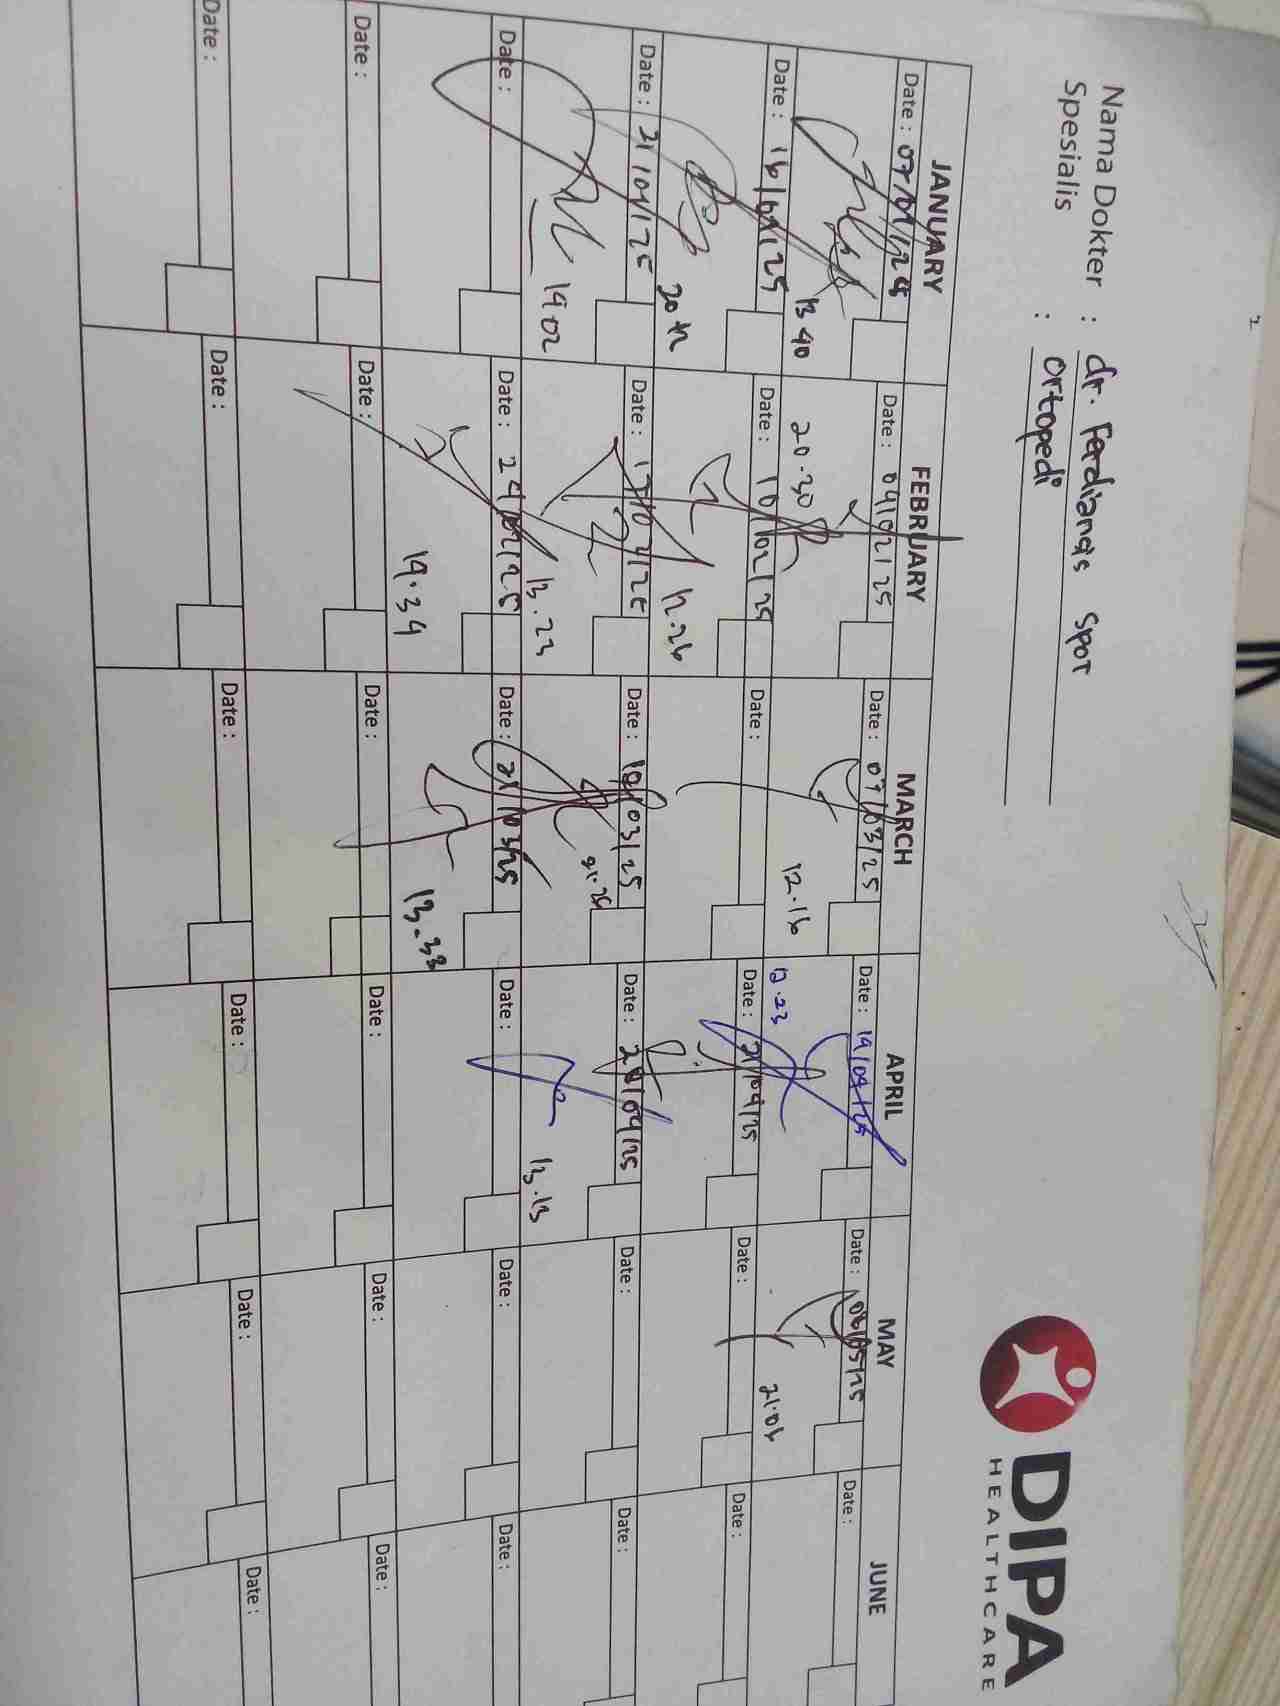 DIPA
HEALTHCARE
Nama Dokter : dr. Ferdiansis SPOT
Spesialis : Ortopedi
JANUARY FEBRUARY MARCH APRIL MAY JUNE
Date : 07/01/25 Date : 04/02/25 Date : 07/03/25 Date : 14/04/25 Date : 06/05/25 Date :
13 40 20.30 12.16 12.23 21.06
Date : 16/01/25 Date : 10/02/25 Date : Date : 21/04/25 Date : Date :
20 12 12.26
Date : 21/01/25 Date : 17/02/25 Date : Date : 28/04/25 Date : Date :
19 02 13.23 21.26 13.13
Date : Date : 24/02/25 Date : 21/03/25 Date : Date : Date :
19.34 13.33
Date : Date : Date : Date : Date : Date :
Date : Date : Date : Date : Date : Date :